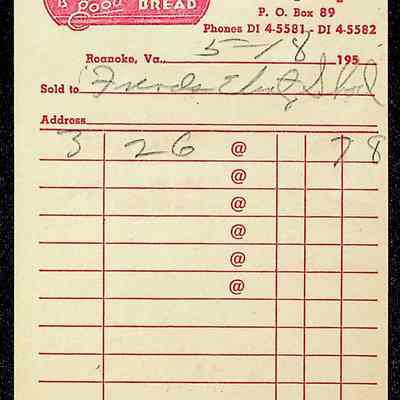 is good BREAD
P. O. Box 89
Phones DI 4-5581 - DI 4-5582
Roanoke, Va., 5-18 195
Sold to Friends
Address
3 26 @ 78
@
@
@
@
@